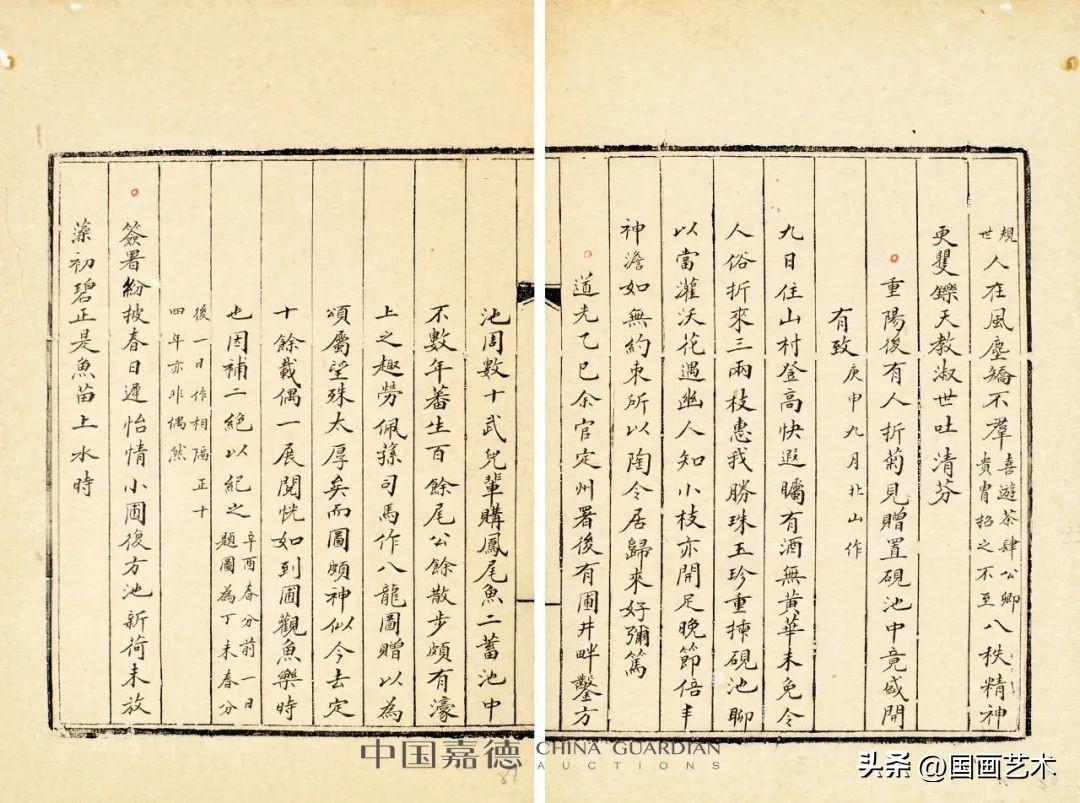 規世人在風塵矯不羣喜遊茶肆公卿貴胄招之不至八秩精神
更矍鑠天教淑世吐清芬
重陽後有人折菊見贈置硯池中竟盛開
有致庚申九月北山作
九日住山村登高快遐矚有酒無黃華未免令
人俗折來三兩枝惠我勝珠玉珍重揀硯池聊
以當灌沃花遇幽人知小枝亦開足晚節倍丰
神澹如無約束所以陶令居歸來好彌篤
道光乙巳余官定州署後有圃井畔鑿方
池周數十武兒輩購鳳尾魚二蓄池中
不數年蕃生百餘尾公餘散步頗有濠
上之趣勞佩蓀司馬作八龍圖贈以為
頌屬望殊太厚矣而圖頗神似今去定
十餘載偶一展閱恍如到圃觀魚樂時
也因補二絕以紀之辛酉春分前一日題圖為丁未春分
後一日作相隔正十四年亦非偶然
簽署紛披春日遲怡情小圃復方池新荷未放
藻初碧正是魚苗上水時
中国嘉德 CHINA GUARDIAN
AUCTIONS
头条 @国画艺术